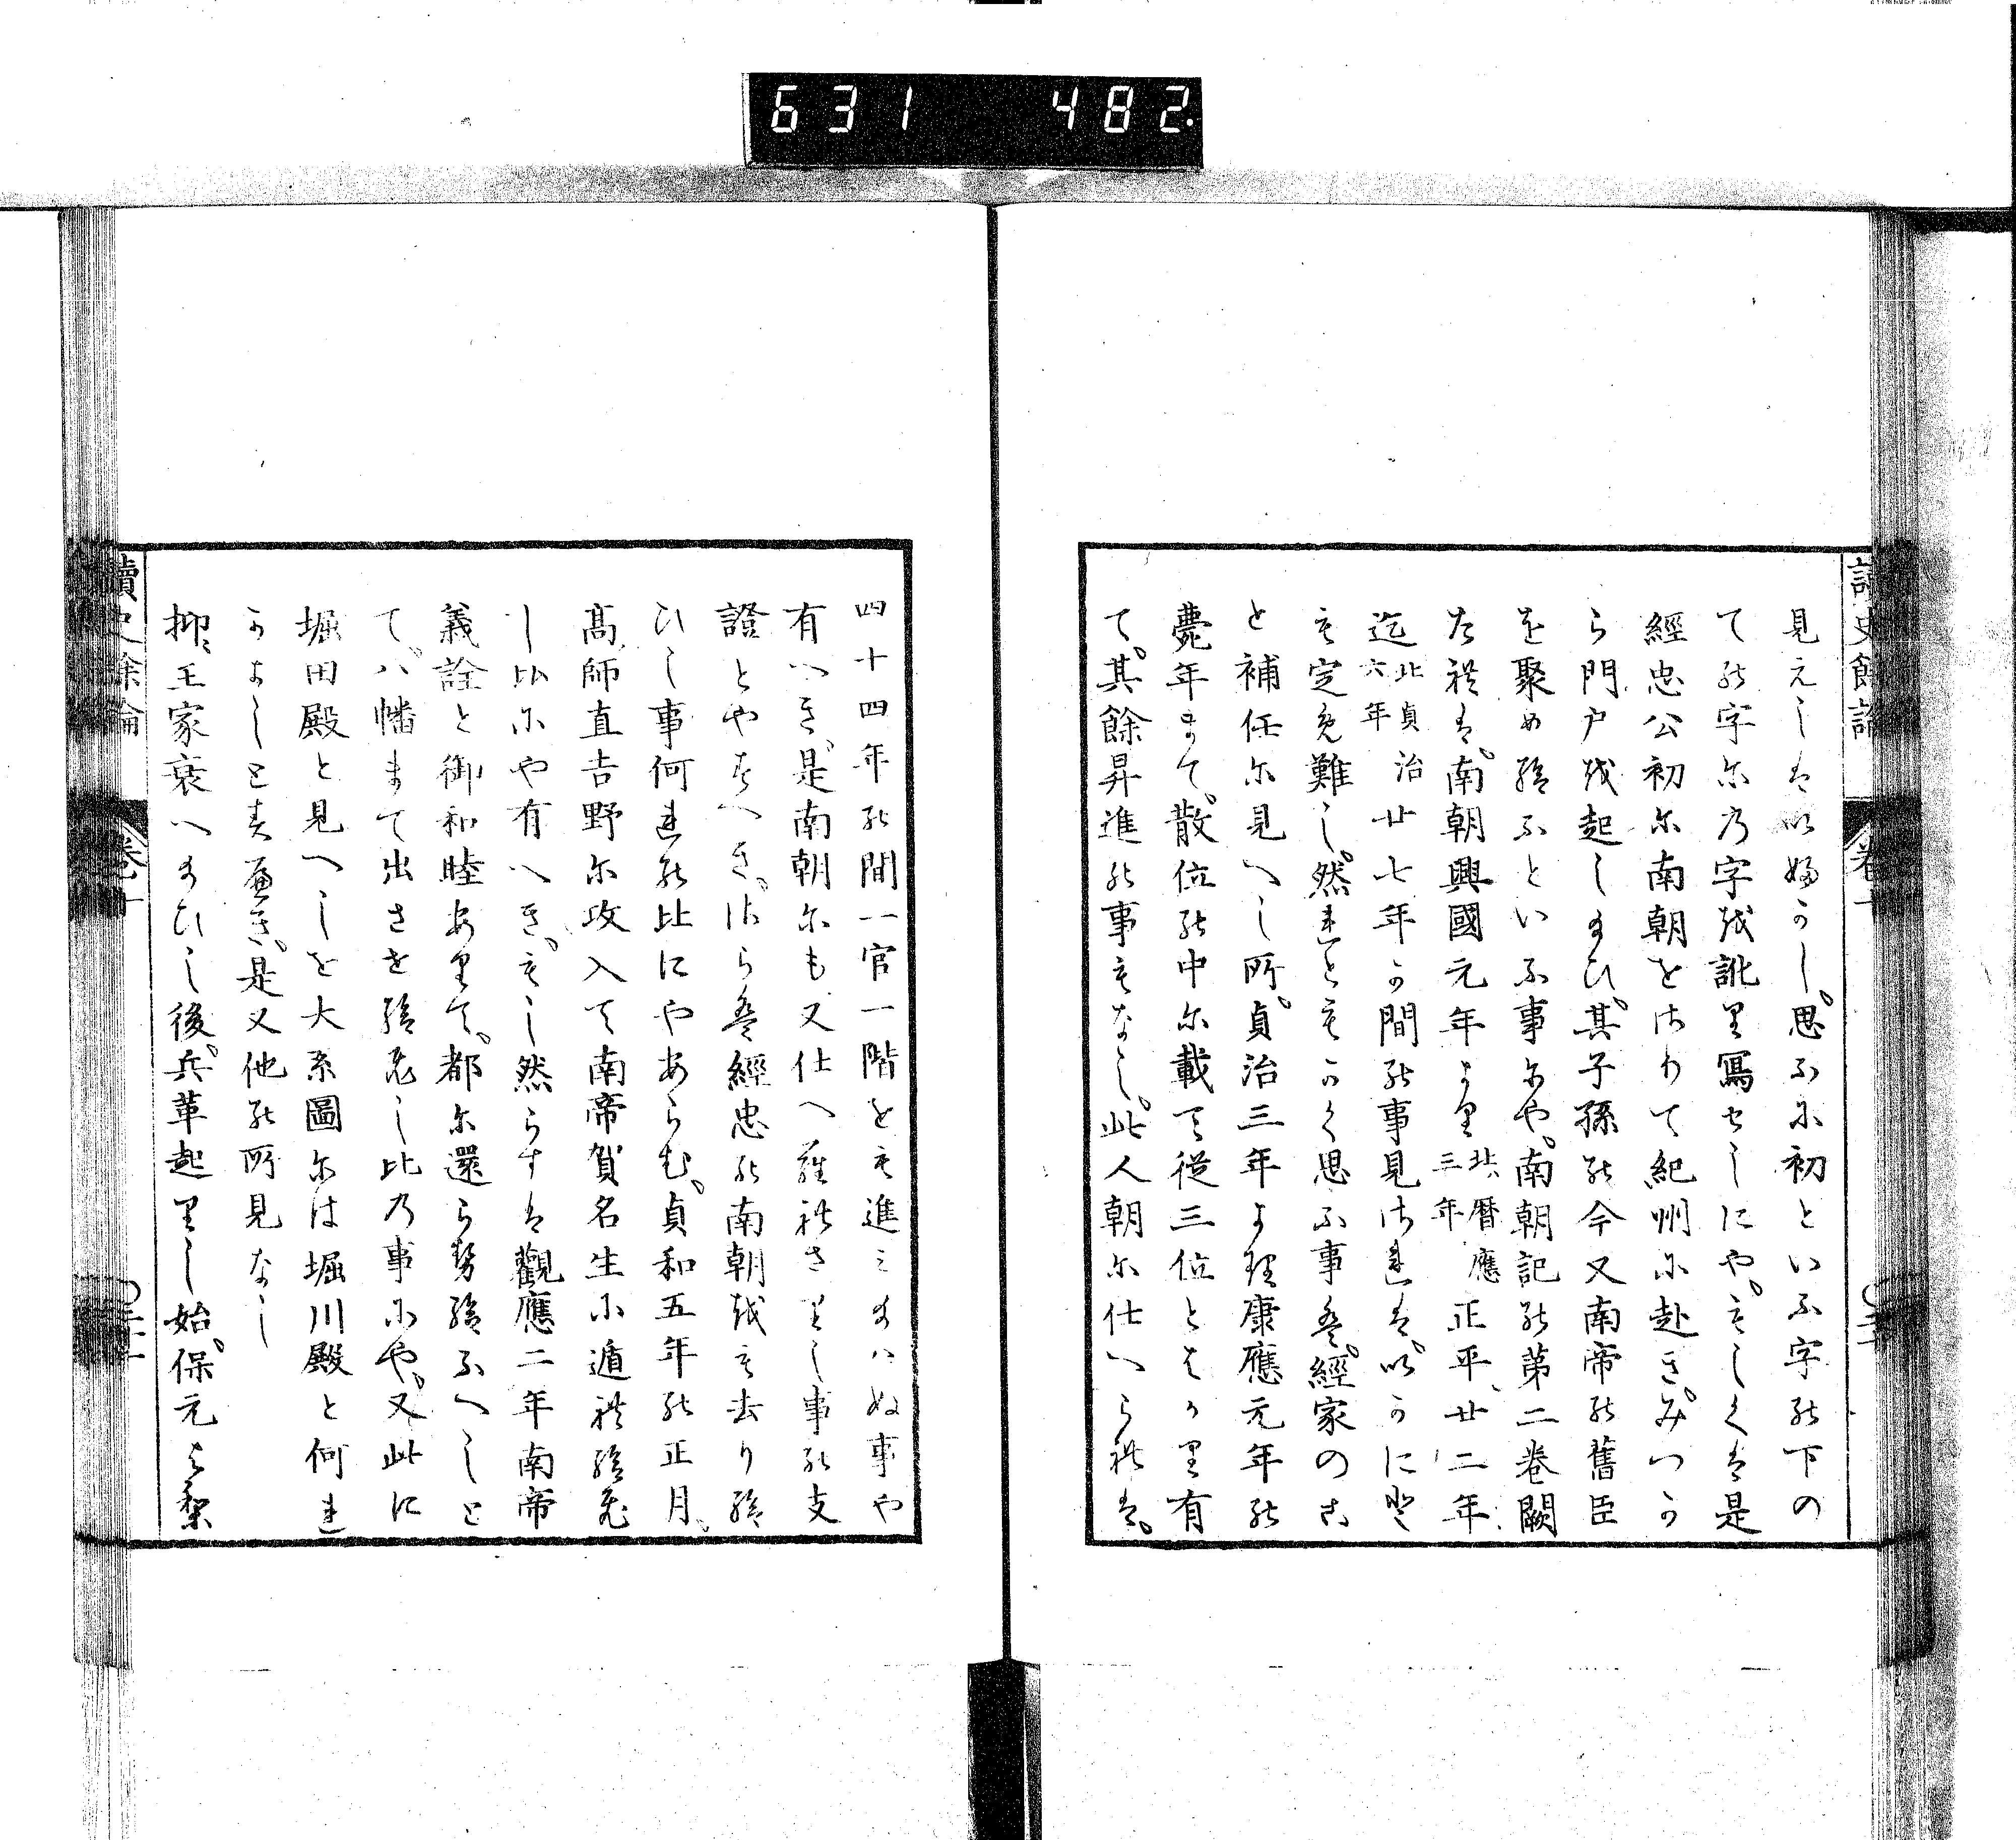 631 482.
讀史餘論
卷十
見えしはいふかし。思ふに初といふ字の下の
ての字に乃字を訛り寫せしにや。もしくは是
經忠公初に南朝をさりて紀州に赴き。みつか
ら門戸を起し給ひ。其子孫の今又南帝の舊臣
を聚め給ふといふ事にや。南朝記の第二卷闕
たれは。南朝興國元年より北暦應三年正平廿二年
迄北貞治六年廿七年か間の事見されは。いかにと
も定め難し。然れともかく思ふ事は。經家のこ
と補任に見へし所。貞治三年より康應元年の
薨年まて。散位の中に載て從三位とはかり有
て。其餘昇進の事もなし。此人朝に仕へられは。
四十四年の間一官一階をも進み給はぬ事や
有へき。是南朝にも又仕へ難れさりし事の支
證とやすへき。さらは經忠の南朝をも去り給
ひし事何れの比にやあらむ。貞和五年の正月。
髙師直吉野に攻入て南帝賀名生に遁れ給ひ
し比にや有へき。もし然らすは觀應二年南帝
義詮と御和睦ありて。都に還らせ給ふへしと
て。八幡まて出させ給ひし比の事にや。又此に
堀田殿と見へしを大系圖には堀川殿と何れ
かよしとすへき。是又他の所見なし
抑、王家衰へ給ひし後。兵革起りし始。保元より
讀史餘論
卷十